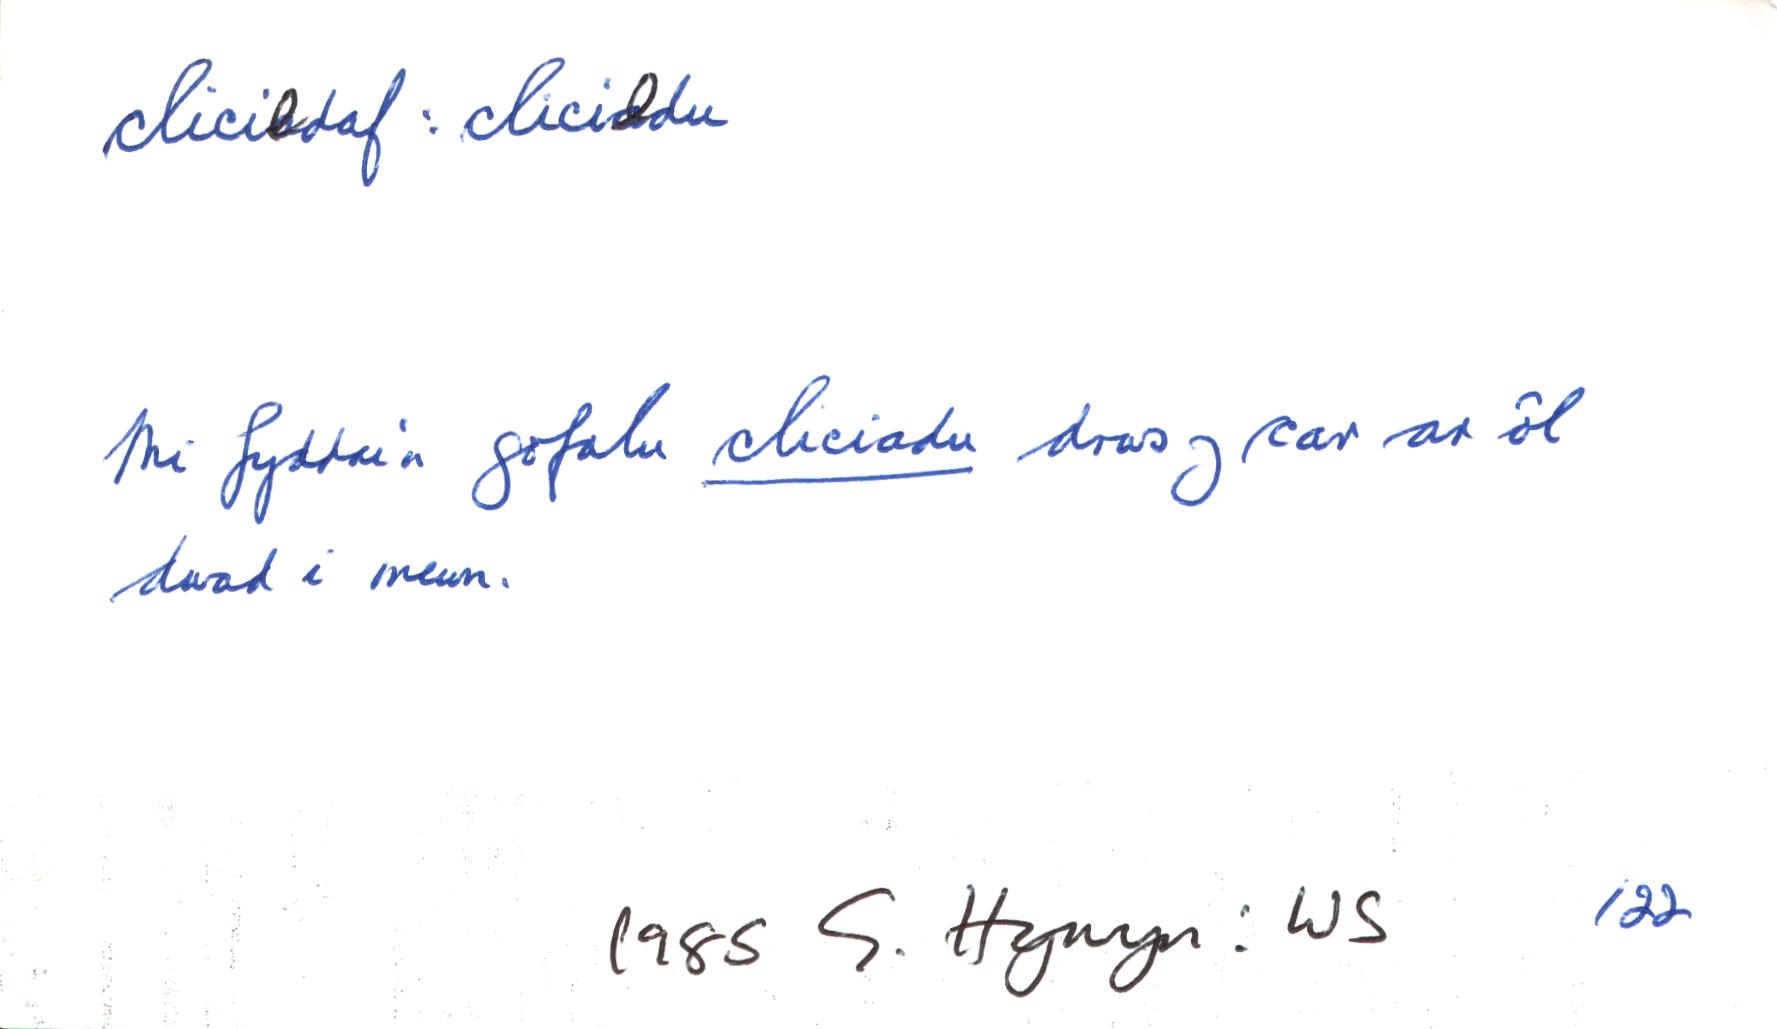 cliciedaf : cliciedu
Mi fyddai'n gofalu cliciadu drws y car ar ôl
dwad i mewn.
1985 G. Hywyn : WS 122